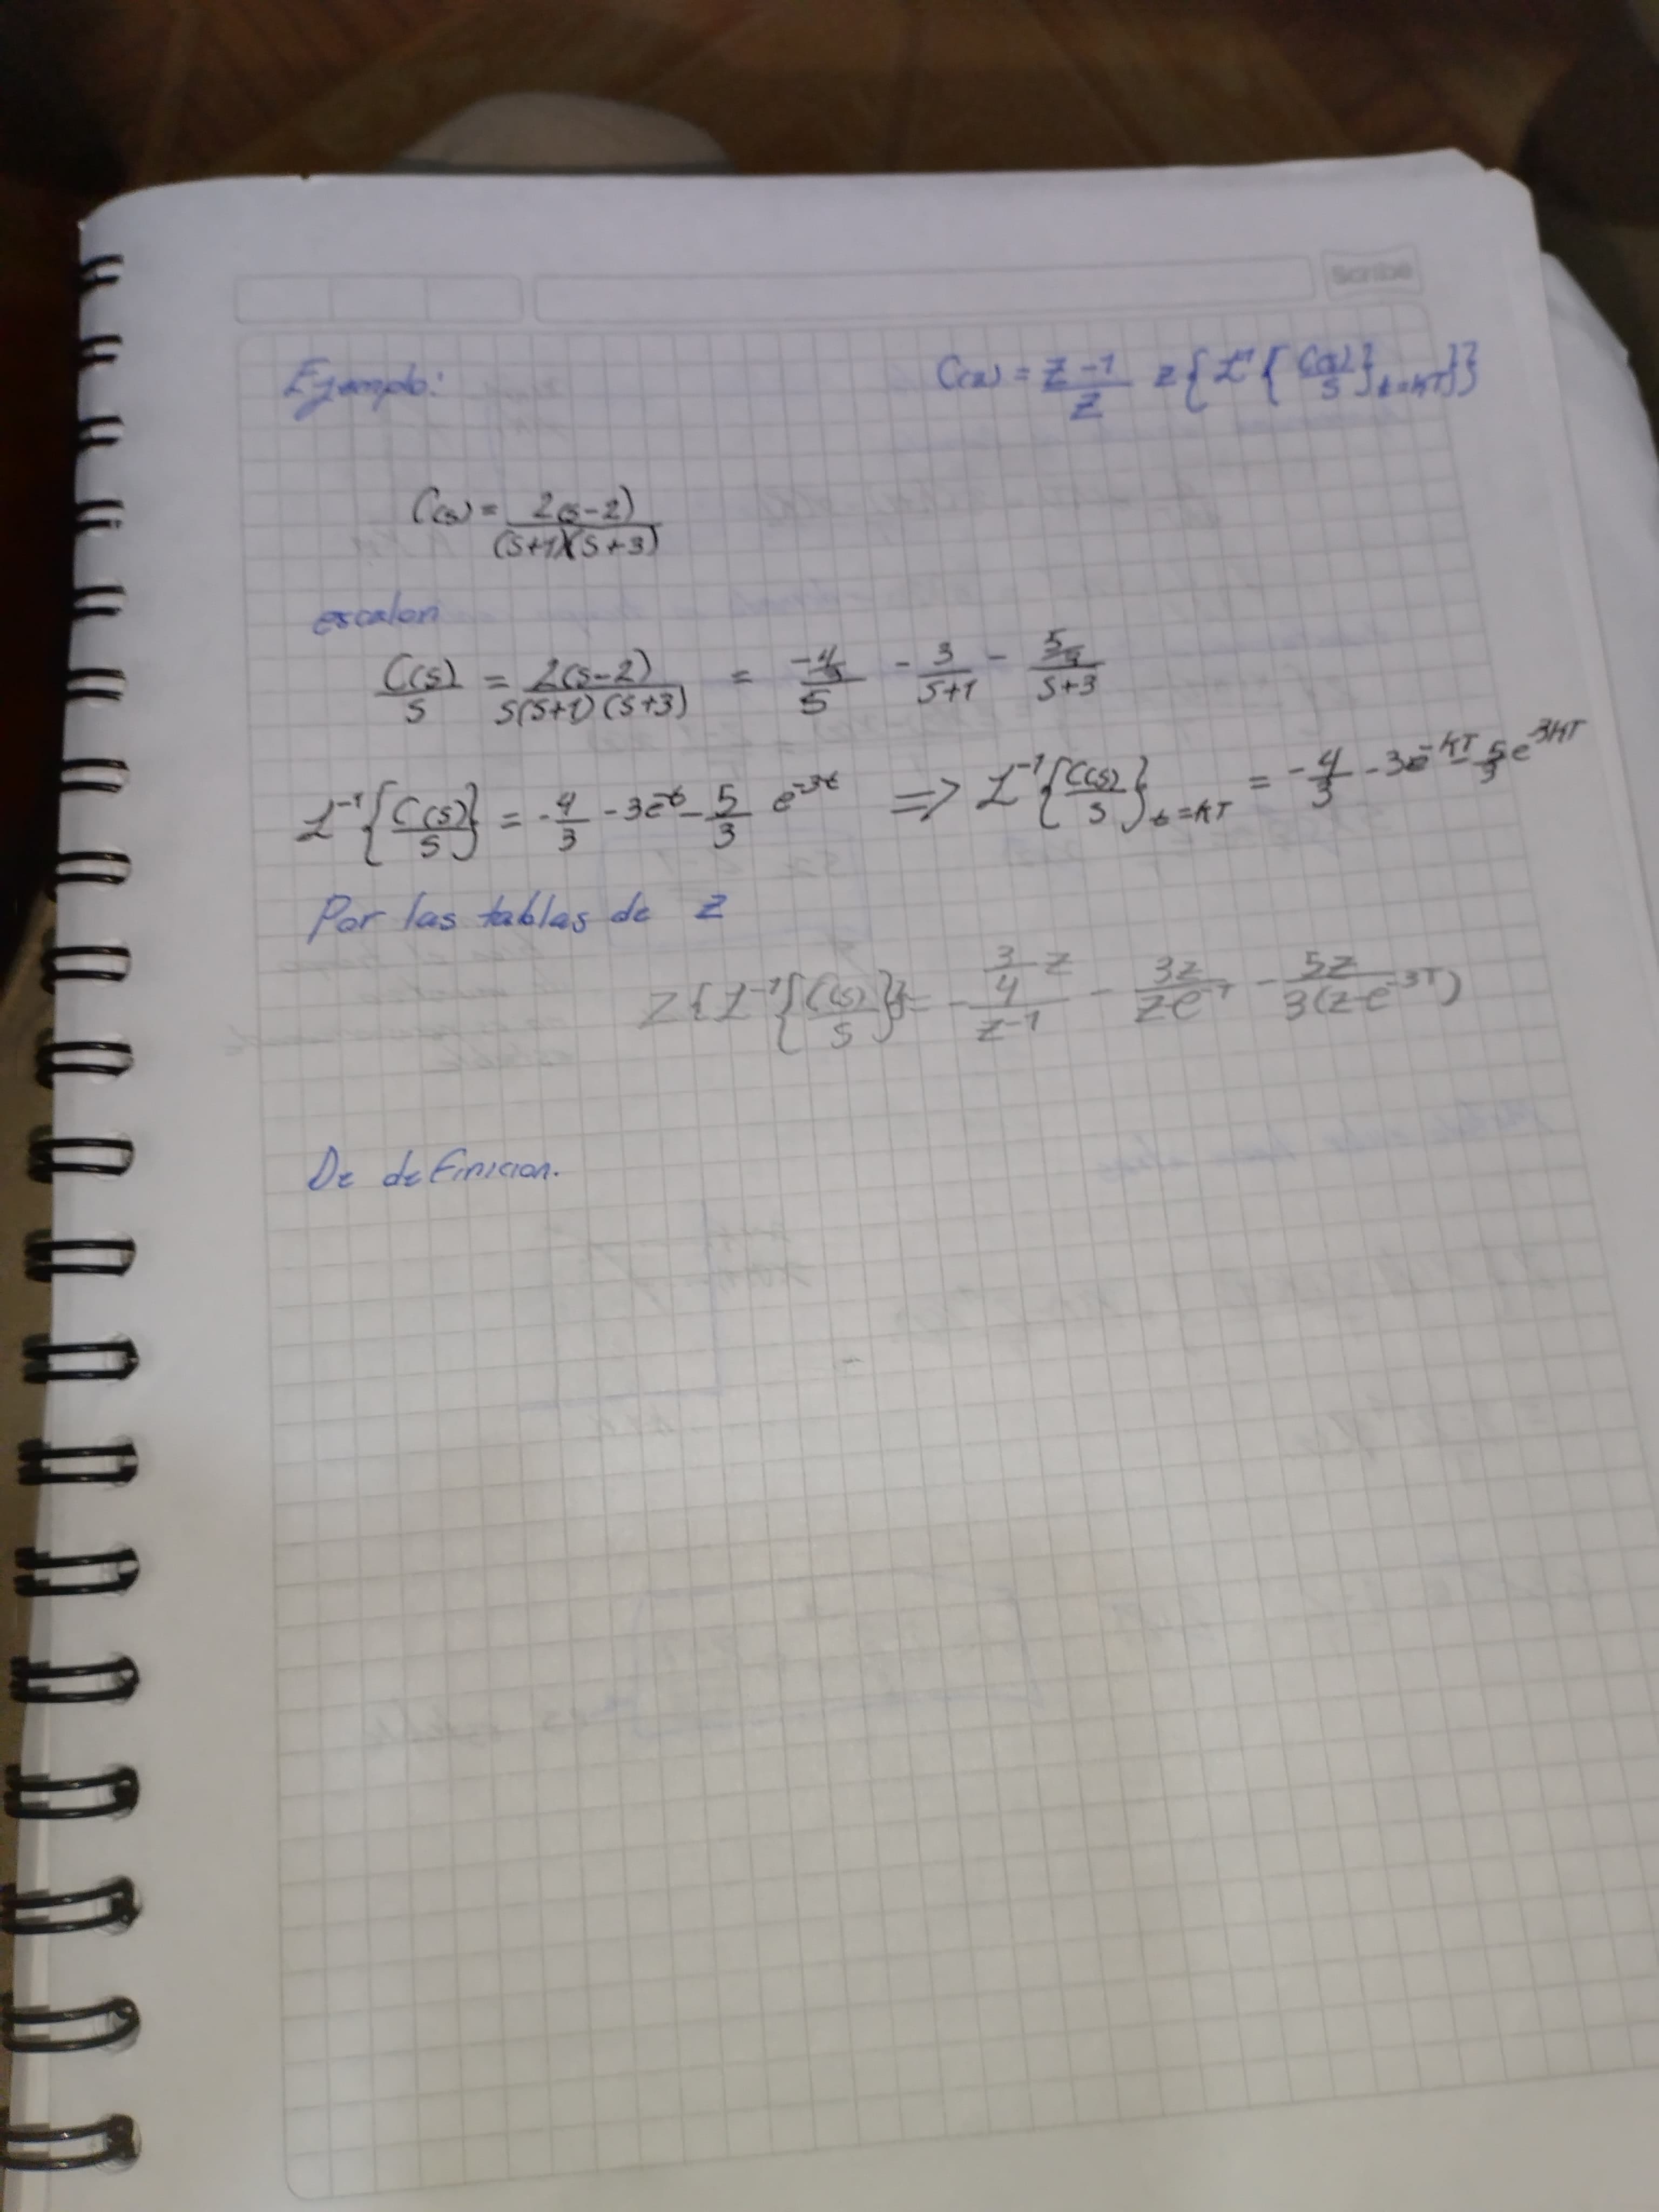 Scribe
Ejemplo: C(z) = \frac{z-1}{z} z\{L^{-1}\{\frac{C(s)}{s}\}_{t=kT}\}\}
C(s) = \frac{2(s-2)}{(s+1)(s+3)}
escalon
\frac{C(s)}{s} = \frac{2(s-2)}{s(s+1)(s+3)} = \frac{-\frac{4}{3}}{s} - \frac{3}{s+1} - \frac{\frac{5}{3}}{s+3}
L^{-1}\{\frac{C(s)}{s}\} = -\frac{4}{3} - 3e^{-t} - \frac{5}{3} e^{-3t} => L^{-1}\{\frac{C(s)}{s}\}_{t=kT} = -\frac{4}{3} - 3e^{-kT} - \frac{5}{3}e^{-3kT}
Por las tablas de z
Z\{L^{-1}\{\frac{C(s)}{s}\}\} = -\frac{\frac{3}{4}z}{z-1} - \frac{3z}{z-e^{-T}} - \frac{5z}{3(z-e^{-3T})}
De definicion.